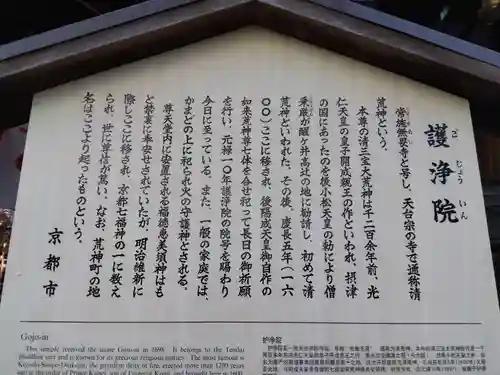 護浄院
ご じょう いん
常施無畏寺と号し、天台宗の寺で通称清
荒神という。
本尊の清三宝大荒神は千二百余年前、光
仁天皇の皇子開成親王の作といわれ、摂津
の国にあったのを後小松天皇の勅により僧
乗厳が醒ヶ井高辻の地に勧請し、初めて清
荒神といわれた。その後、慶長五年(一六
〇〇)ここに移され、後陽成天皇御自作の
如来荒神尊七体を合せ祀って長日の御祈願
を行い、元禄一〇年護浄院の院号を賜わり
今日に至っている。また、一般の家庭では、
かまどの上に祀られ火の守護神とされる。
尊天堂内に安置される福徳恵美須神はも
と禁裏に奉安せされていたが、明治維新に
際しここに移され、京都七福神の一に数え
られ、世に尊信が篤い。なお、荒神町の地
名はここより起ったものという。
京都市
Gojo-in
This temple received the name Gojo-in in 1698. It belongs to the Tendai
Buddhist sect and is known for its precious religious entities. The most famous is
护净院